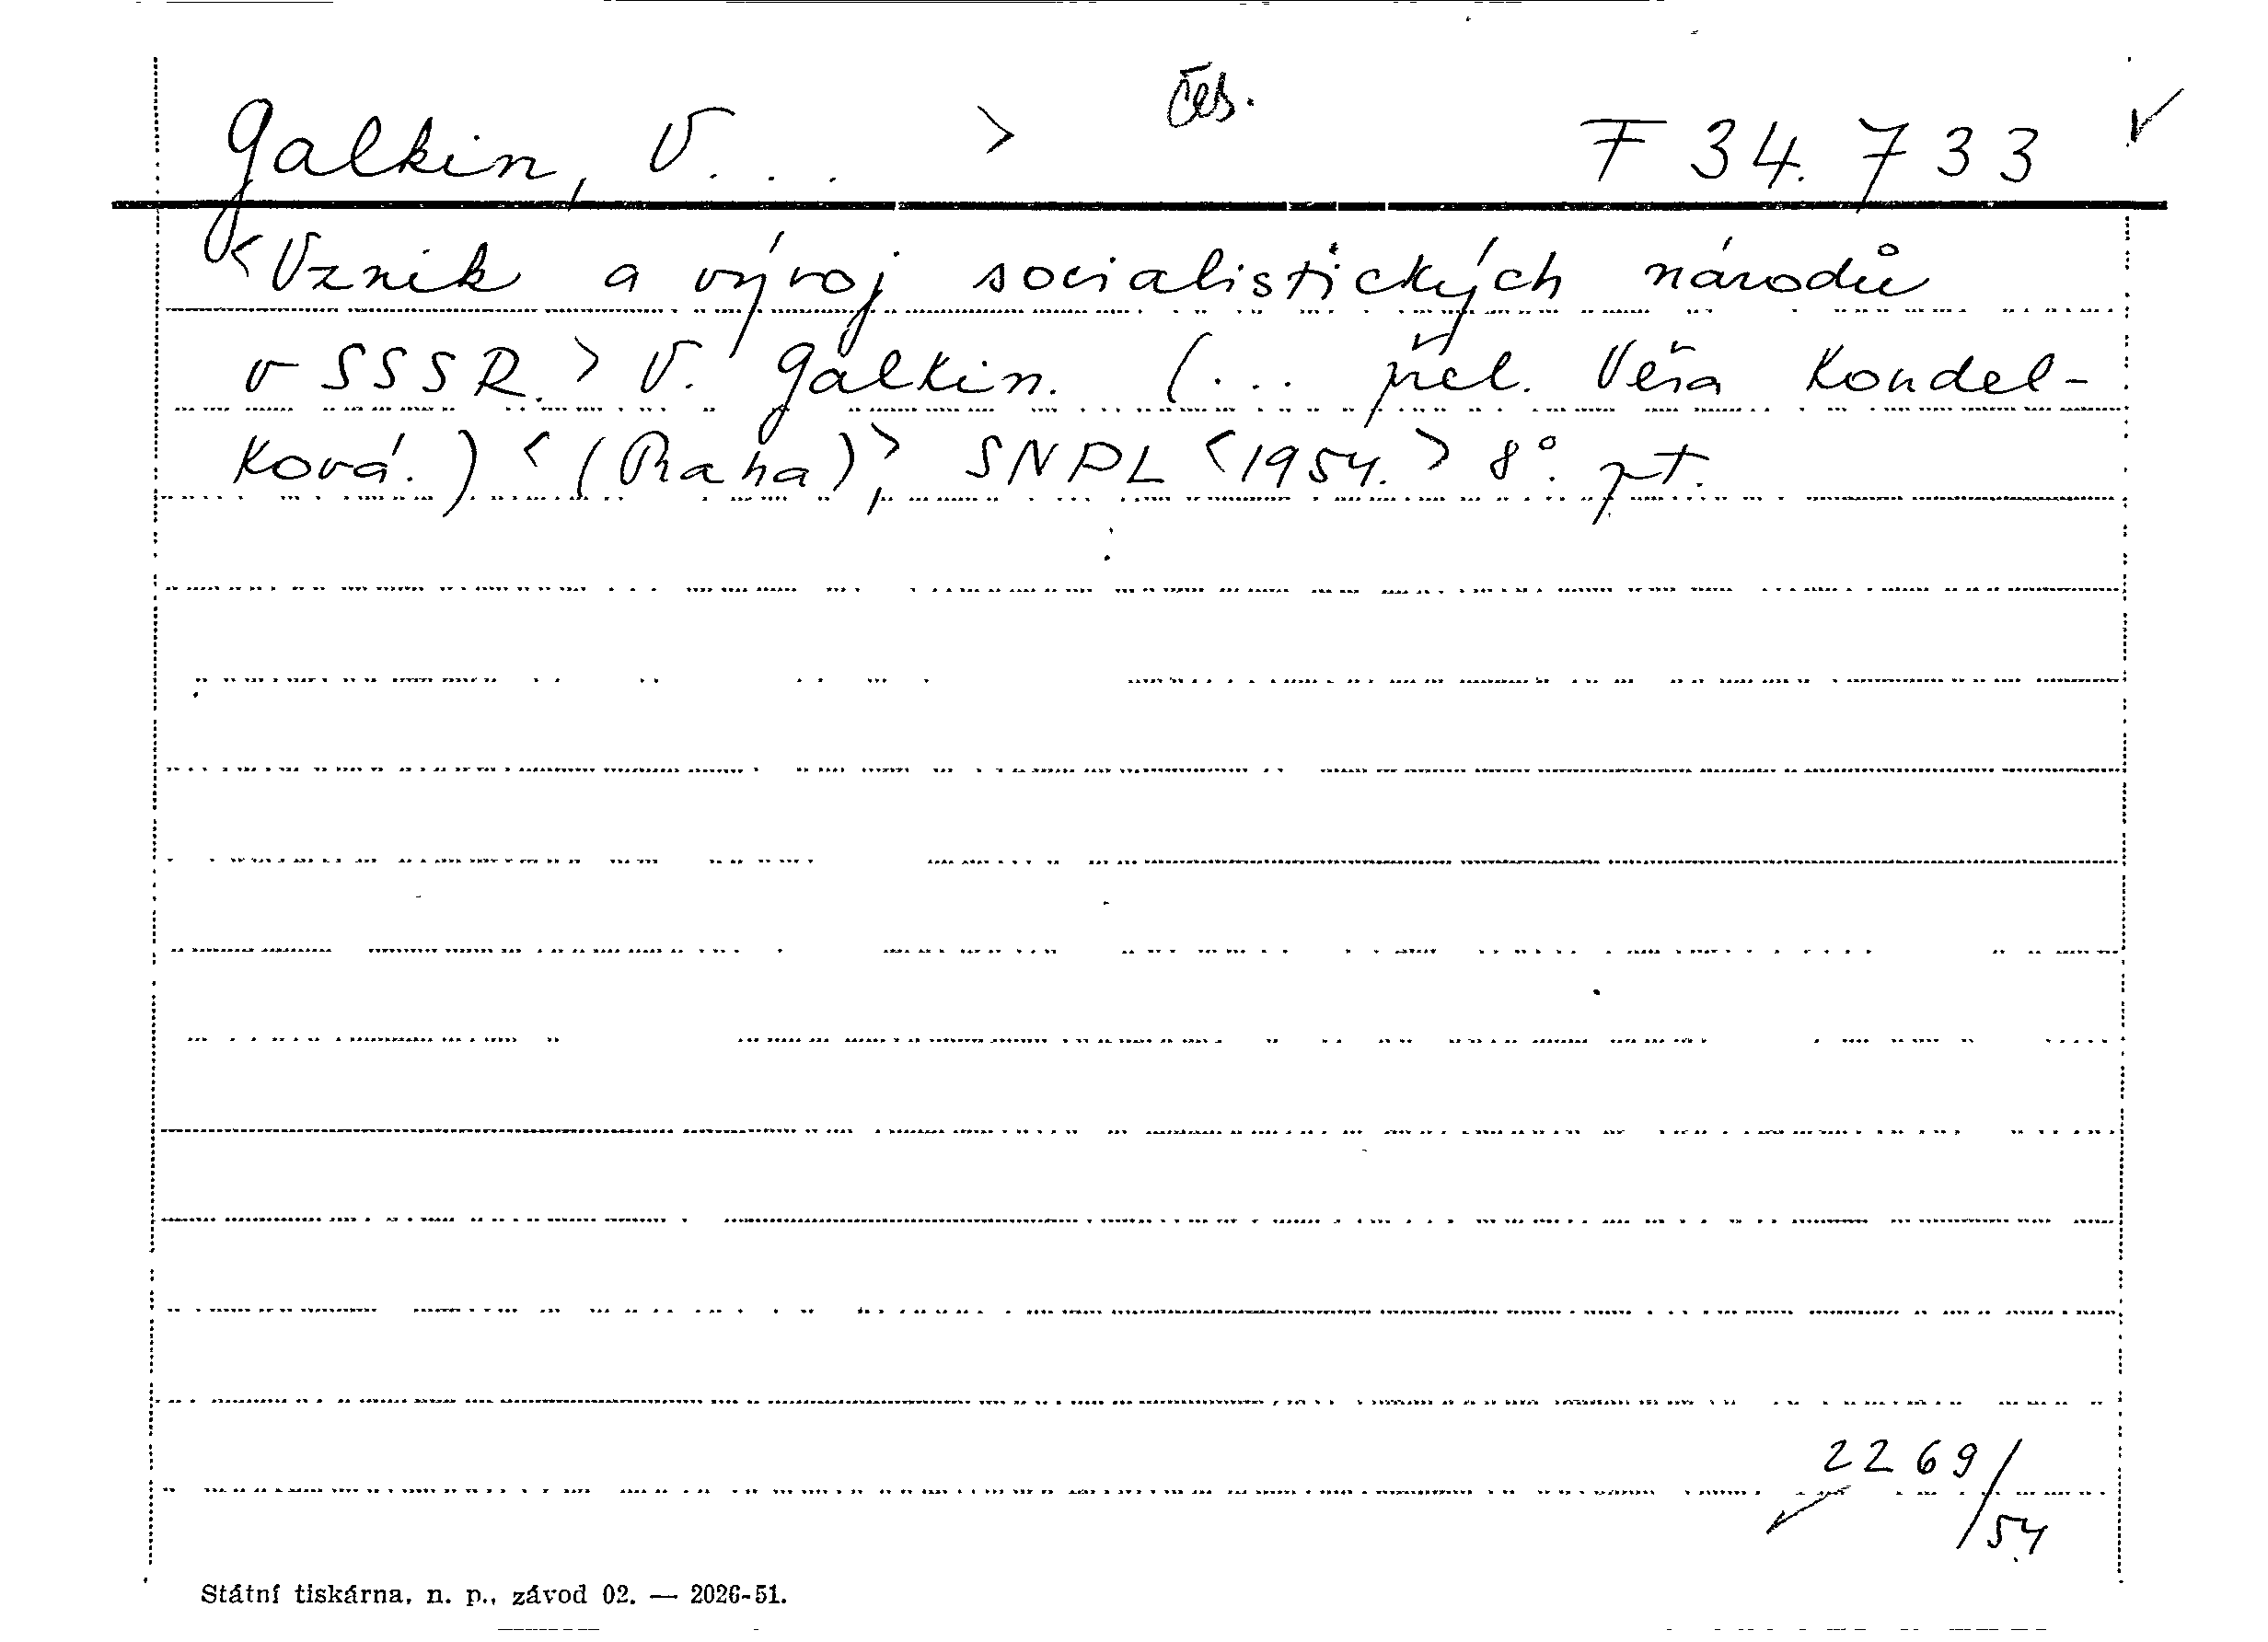 čes.
Galkin, V. . . > F 34.733
<Vznik a vývoj socialistických národů
v SSSR.> V. Galkin. (... přel. Věra Koudel-
ková.) <(Praha)>, SNPL <1954.> 8°. pt.
2269/54
Státní tiskárna, n. p., závod 02. — 2026-51.